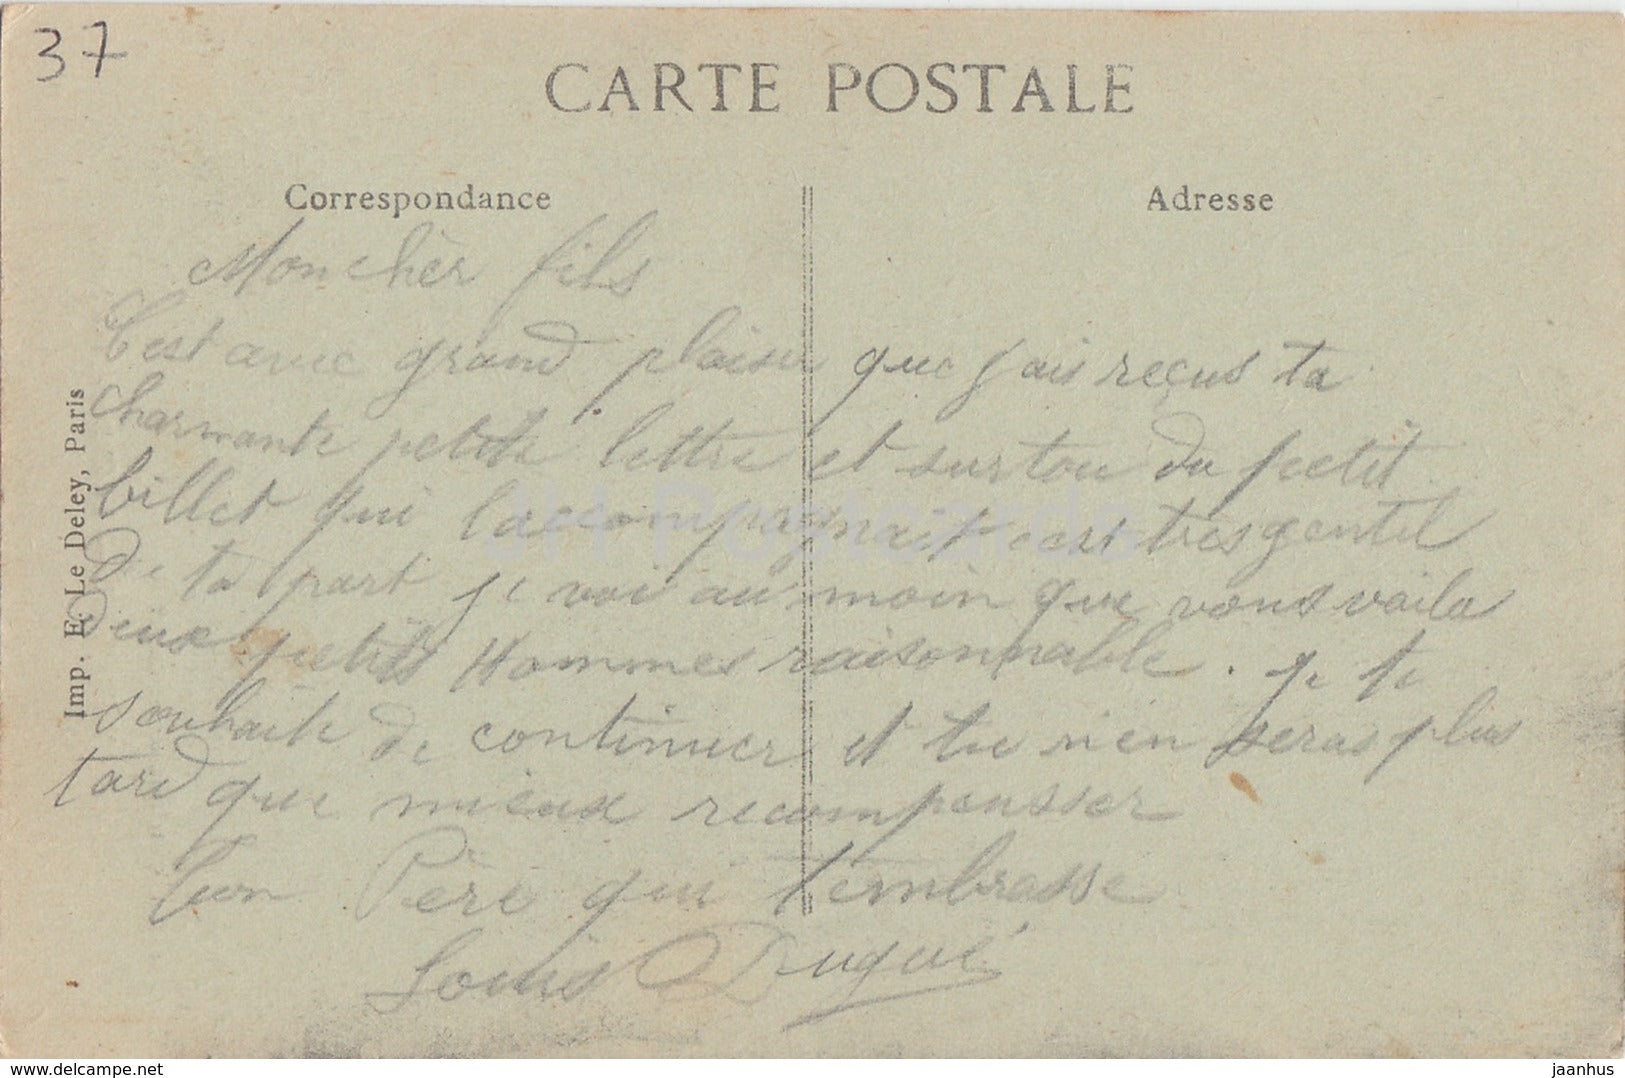 37
CARTE POSTALE
Correspondance
Adresse
Mon chèr fils
C'est avec grand plaisir que j'ais reçus ta
charmante petite lettre et surtou du petit
billet qui l'accompagnait c'est tres gentil
de ta part je voi au moin que vous voila
deux petits Hommes raisonnable. je te
souhaite de continuer et tu n'en seras plus
tard que mieux recompensser
Ton Père qui t'embrasse
Louis Dugué
Imp. E. Le Deley, Paris
JH Postcards
www.delcampe.net
jaanhus